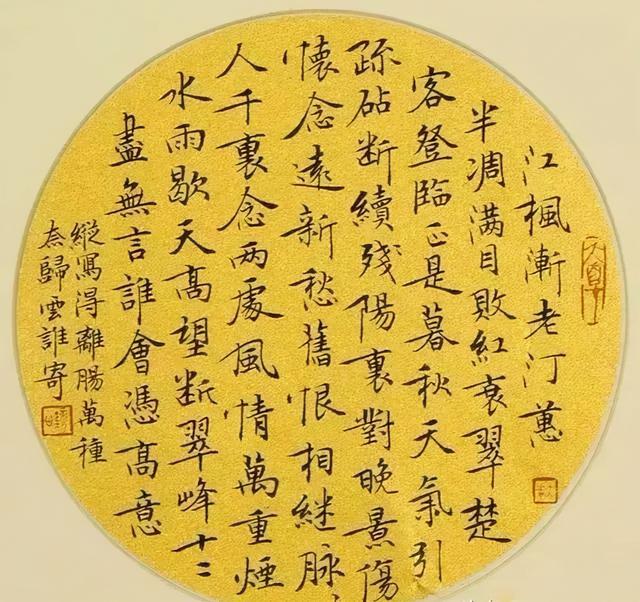 江楓漸老汀蕙
半凋满目敗紅衰翠楚
客登臨正是暮秋天氣引
疏砧断續殘陽裏對晚景傷
懷念遠新愁舊恨相継脉
人千裏念兩處風情萬重煙
水雨歇天高望断翠峰十二
盡無言誰會憑高意
縱寫得離腸萬種
奈歸雲誰寄